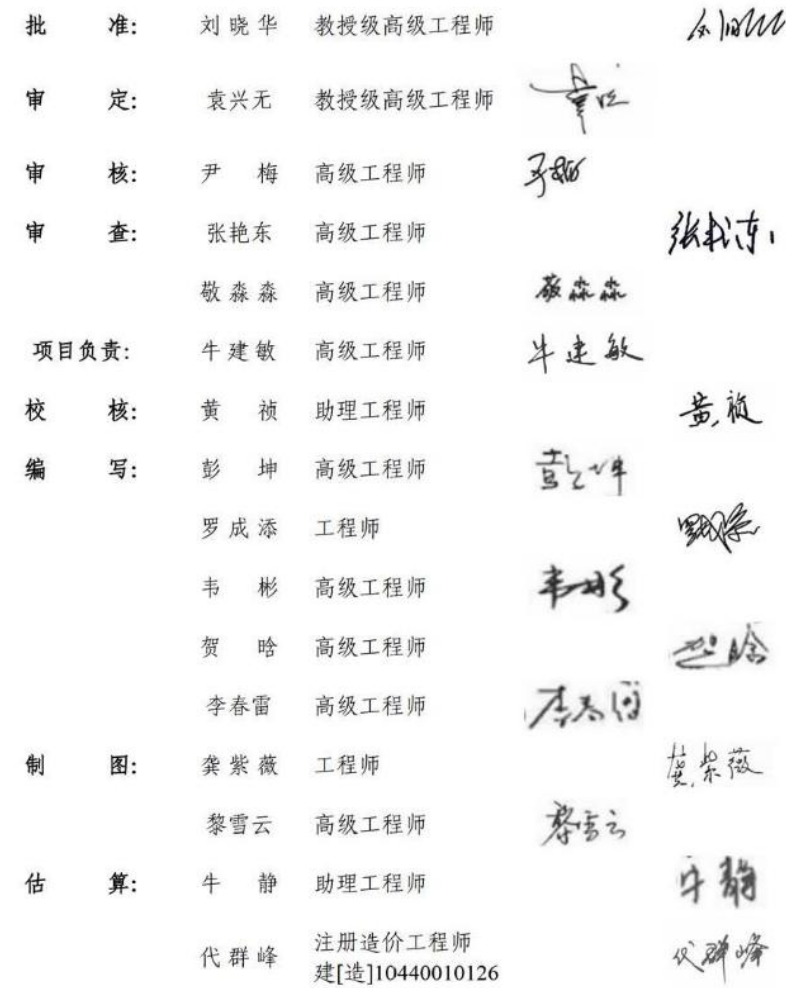 批 准: 刘晓华 教授级高级工程师
审 定: 袁兴无 教授级高级工程师
审 核: 尹 梅 高级工程师
审 查: 张艳东 高级工程师 张艳东
敬淼淼 高级工程师 敬淼淼
项目负责: 牛建敏 高级工程师 牛建敏
校 核: 黄 祯 助理工程师 黄祯
编 写: 彭 坤 高级工程师 彭坤
罗成添 工程师
韦 彬 高级工程师 韦彬
贺 晗 高级工程师 贺晗
李春雷 高级工程师 李春雷
制 图: 龚紫薇 工程师 龚紫薇
黎雪云 高级工程师 黎雪云
估 算: 牛 静 助理工程师 牛静
代群峰 注册造价工程师 代群峰
建[造]10440010126